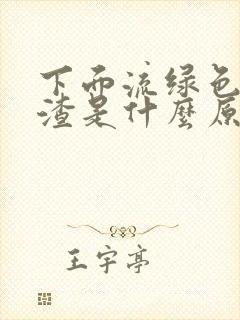 下面流绿色
渣是什麼原
王宇亭